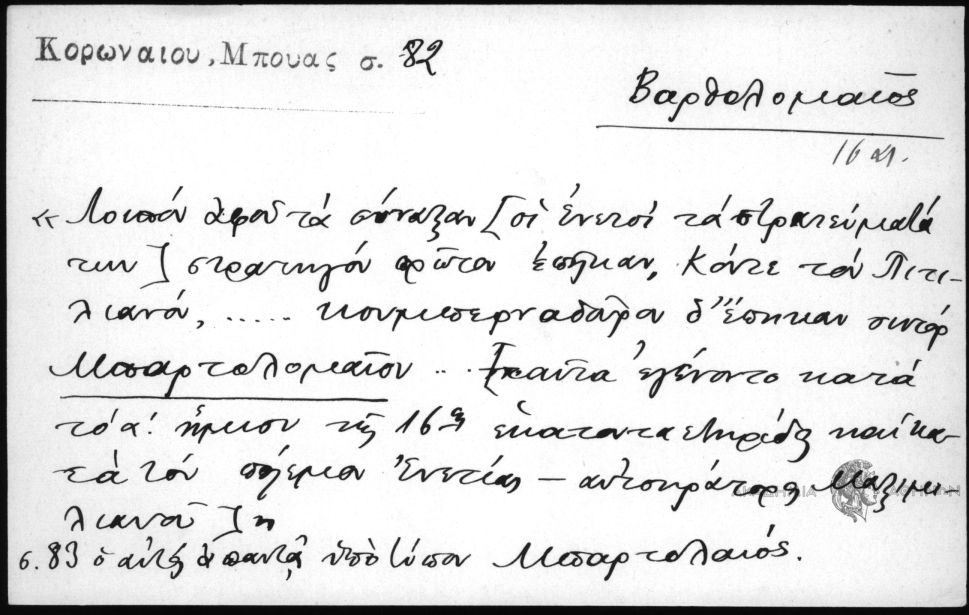 Κορωναιου, Μπουας σ. 82
Βαρθολομαῖος
16 αι.
« Λοιπόν ἀφοῦ τά σύναξαν [οἱ Ἐνετοί τά στρατεύματά
των] στρατηγόν πρῶτον ἐποῖκαν, Κόντε τόν Πιτι-
λιανό, ..... κουμπερναδῶρον δ' ἔποικαν σινιόρ
Μπαρτολομαῖον .. [ταῦτα ἐγένοντο κατά
τό α! ἥμισυ τῆς 16ης ἑκατονταετηρίδος καί κα-
τά τόν πόλεμον Ἐνετίας – αὐτοκράτορος Μαξιμι
λιανοῦ ]»
σ. 83 ὁ αὐτός ἀπαντᾷ ὑπὸ τύπον Μπαρτολαιός.
ΑΚΑΔΗΜΙΑ ΑΘΗΝΩΝ